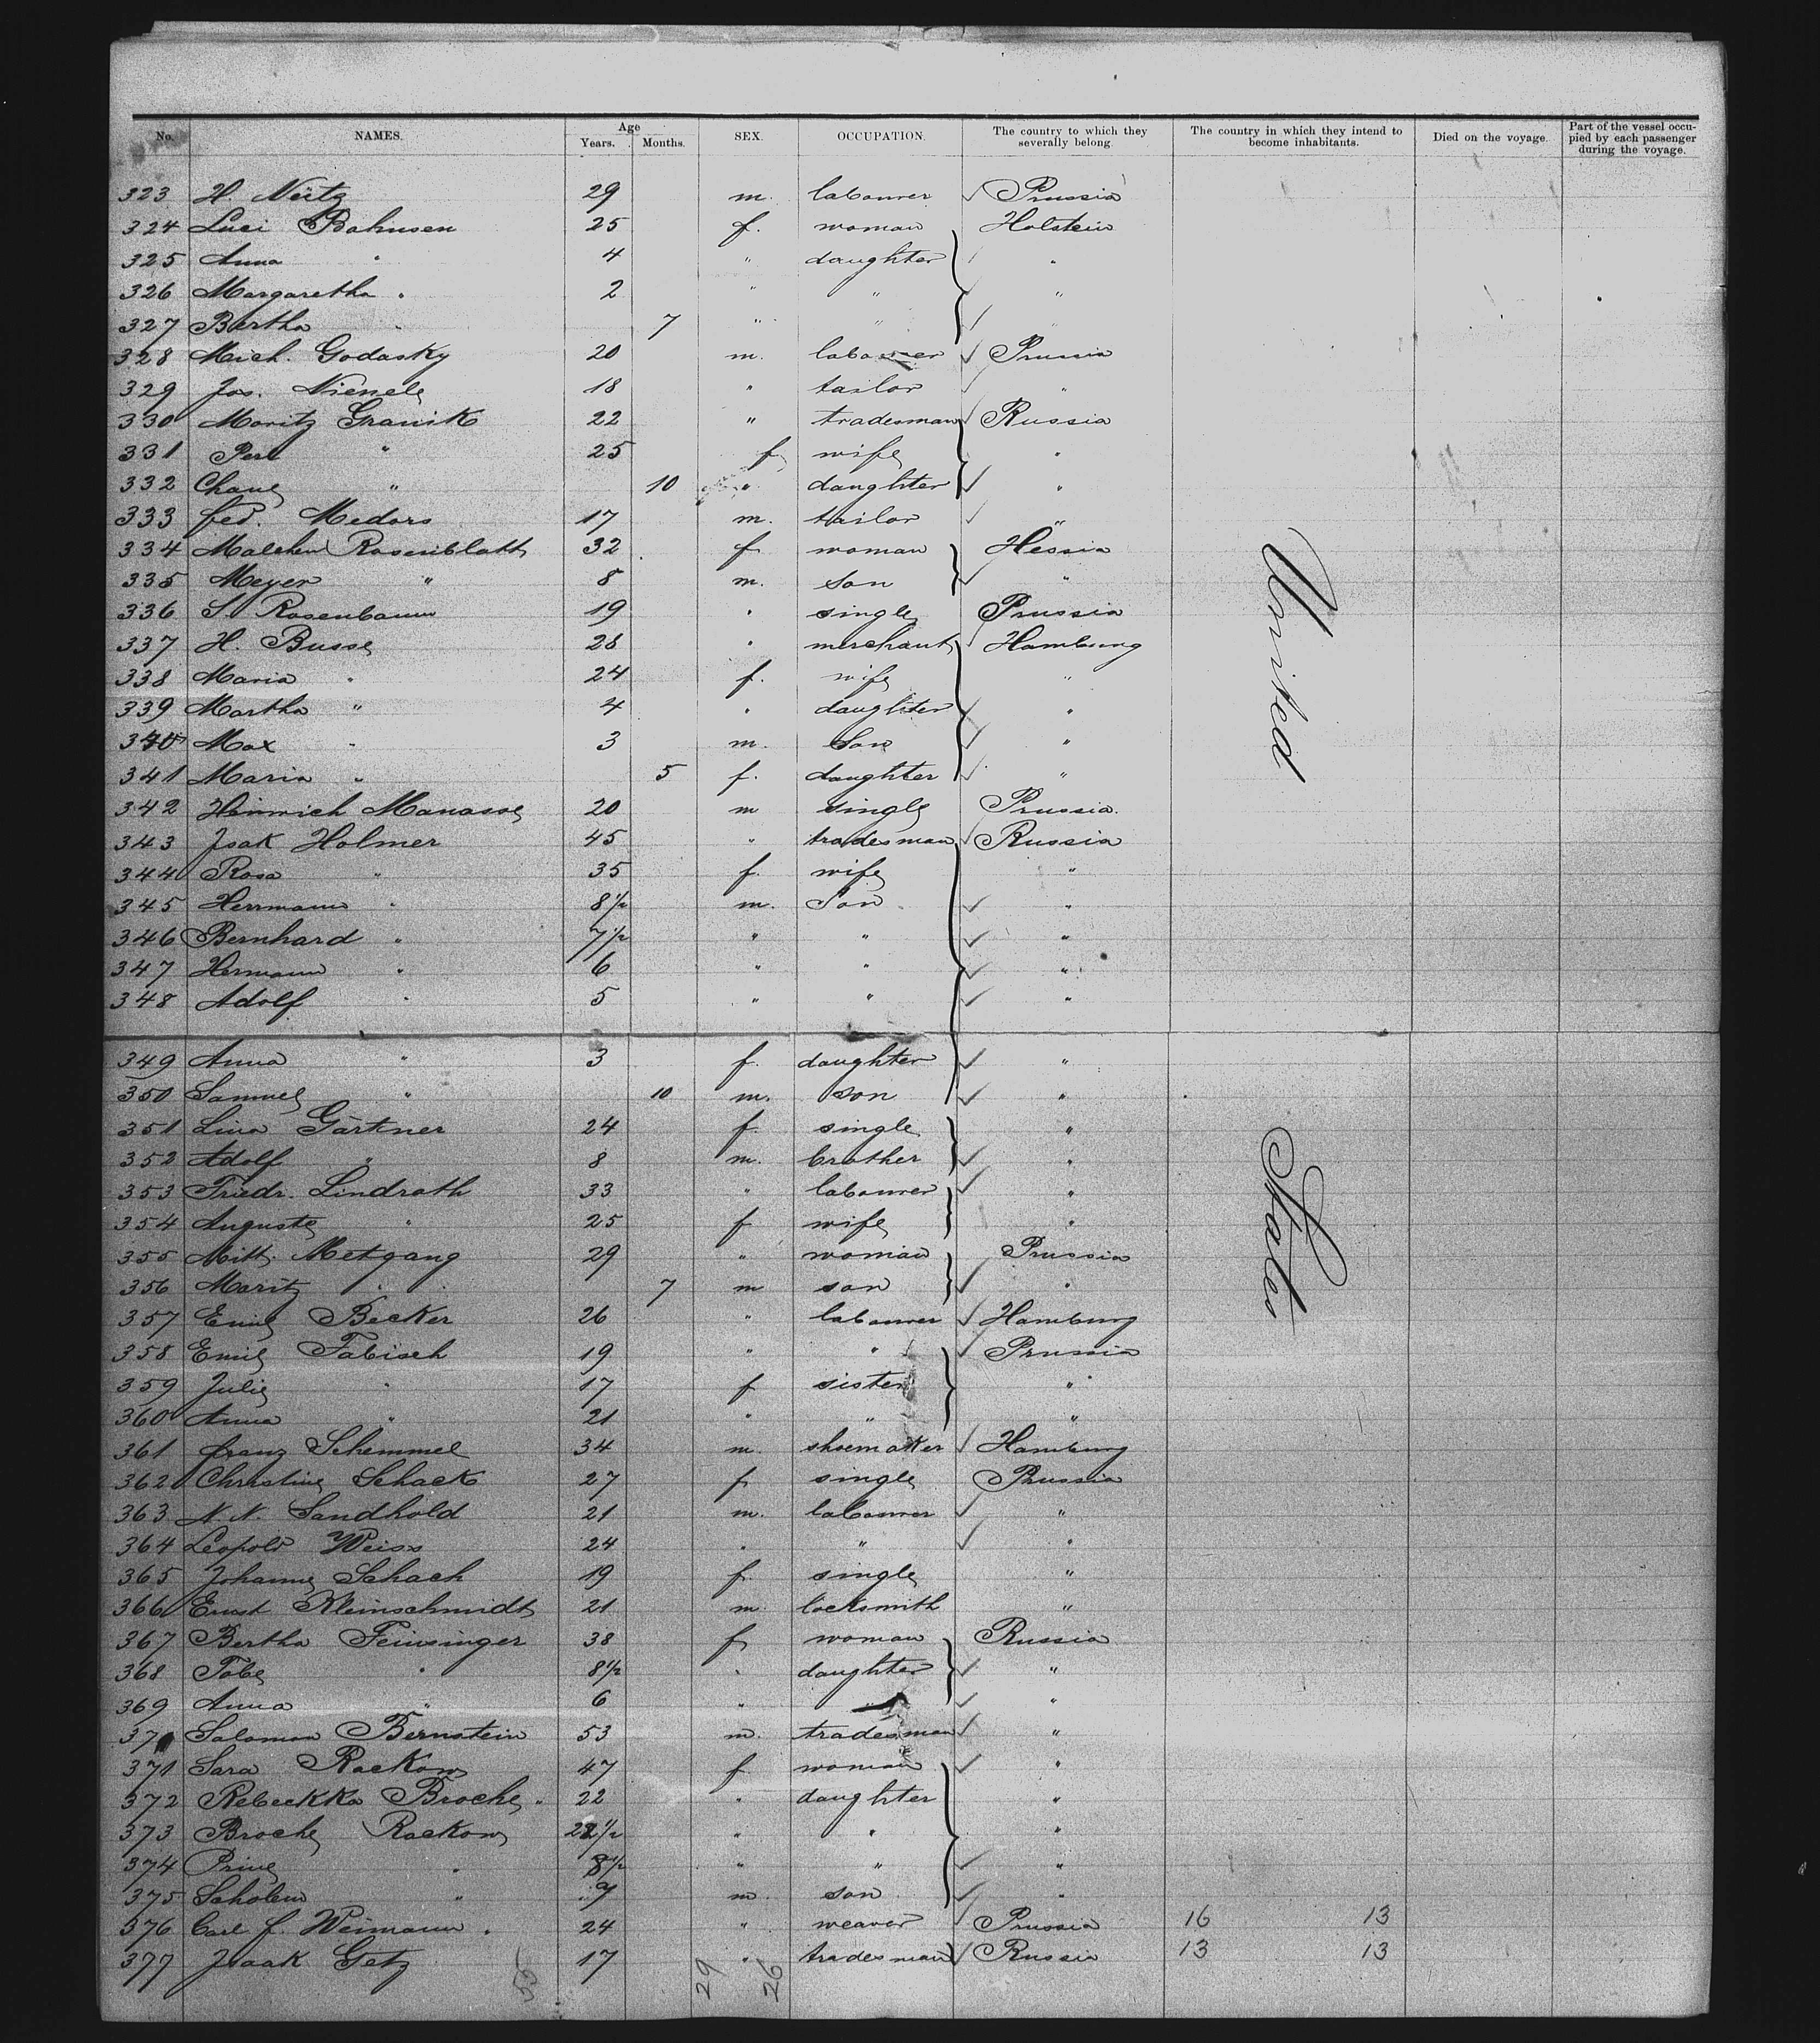 No. NAMES. Age Years. Months. SEX. OCCUPATION. The country to which they severally belong. The country in which they intend to become inhabitants. Died on the voyage. Part of the vessel occupied by each passenger during the voyage.
323 H. 29 m. labourer Prussia
324 Luci Bahnsen 25 f. woman Holstein
325 Anna " 4 " daughter "
326 Margaretha " 2 " " "
327 Bertha " 7 " " "
328 Mich. Godasky 20 m. labourer Prussia
329 Jos. 18 " tailor "
330 Moritz Granik 22 " tradesman Russia
331 Perl " 25 f wife "
332 Chane " 10 " daughter "
333 fed. Medors 17 m. tailor "
334 Malchen Rosenblatt 32 f woman Hessia
335 Meyer " 8 m. son "
336 S. Rosenbaum 19 " single Prussia
337 H. Busse 28 " merchant Hamburg
338 Maria " 24 f. wife "
339 Martha " 4 " daughter "
340 Max " 3 m. son "
341 Maria " 5 f. daughter "
342 Heinrich Manasse 20 m single Prussia.
343 Isak Holmer 45 " tradesman Russia
344 Rosa " 35 f. wife "
345 Herrmann " 8 1/2 m. son "
346 Bernhard " 7 1/2 " " "
347 Hermann " 6 " " "
348 Adolf " 5 " " "
349 Anna " 3 f. daughter "
350 Samuel " 10 m. son "
351 Lina Gärtner 24 f. single "
352 Adolf " 8 m. brother "
353 Friedr. Lindroth 33 " labourer "
354 Auguste " 25 f wife "
355 Metzgang 29 " woman Prussia
356 Moritz " 7 m son "
357 Emil Becker 26 " labourer Hamburg
358 Emil Fabisch 19 " " Prussia
359 Julie " 17 f sister "
360 Anna " 21 " " "
361 franz Schemmel 34 m. shoemaker Hamburg
362 Christine Schack 27 f single Prussia
363 N. N. Sandhold 21 m. labourer "
364 Leopold Weiss 24 " " "
365 Johanne Schach 19 f single "
366 Ernst Kleinschmidt 21 m. locksmith "
367 Bertha Feinsinger 38 f woman Russia
368 Tobe " 8 1/2 " daughter "
369 Anna " 6 " " "
370 Salomon Bernstein 53 m. tradesman "
371 Sara Rackow 47 f woman "
372 Rebeckka Broche " 22 " daughter "
373 Broche Rackow " " "
374 Prine " 8 1/2 " " "
375 Scholem " m. son "
376 Carl f. Weimann 24 " weaver Prussia 16 13
377 Isaak Getz 17 " tradesman Russia 13 13
United
States
29
26